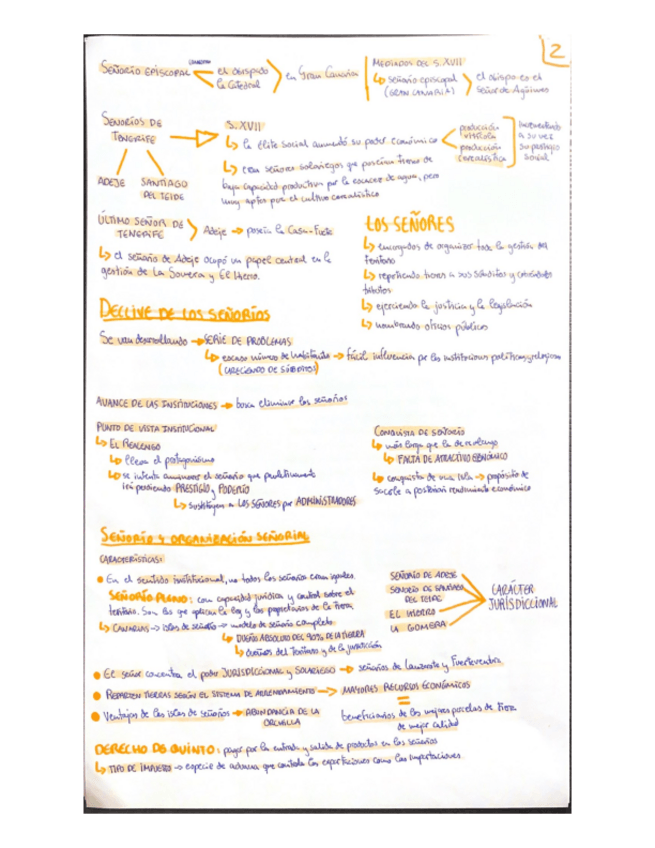 2
SEÑORÍO EPISCOPAL
el obispado
la Catedral
en Gran Canaria
MEDIADOS DEL S. XVII
señorío episcopal
(GRAN CANARIA)
el obispo es el
Señor de Agüimes
SEÑORÍOS DE
TENERIFE
ADEJE
SANTIAGO
DEL TEIDE
S. XVII
la élite social aumentó su poder económico
producción
vinícola
producción
cerealística
Incrementando
a su vez
su prestigio
social
eran señores solariegos que poseían tierras de
baja capacidad productiva por la escasez de agua, pero
muy aptas por el cultivo cerealístico
ÚLTIMO SEÑOR DE
TENERIFE
Adeje → poseía la Casa-Fuerte
el señorío de Adeje ocupó un papel central en la
gestión de La Gomera y El Hierro.
LOS SEÑORES
encargados de organizar toda la gestión del
territorio
repartiendo tierras a sus súbditos y cobrándoles
tributos
ejerciendo la justicia y la legislación
nombrando oficios públicos
DECLIVE DE LOS SEÑORÍOS
Se van desarrollando → SERIE DE PROBLEMAS
escaso número de habitantes → fácil influencia por las instituciones políticas y religiosas
(CARECIENDO DE SÚBDITOS)
AVANCE DE LAS INSTITUCIONES → busca eliminar los señoríos
PUNTO DE VISTA INSTITUCIONAL
EL REALENGO
lleva el protagonismo
se intenta aminorar el señorío que paulatinamente
irá perdiendo PRESTIGIO y PODERÍO
sustituyen a LOS SEÑORES por ADMINISTRADORES
CONQUISTA DE SEÑORÍO
más larga que la de realengo
FALTA DE ATRACTIVO ECONÓMICO
conquista de una isla → propósito de
sacarle a posteriori rendimiento económico
SEÑORÍO Y ORGANIZACIÓN SEÑORIAL
CARACTERÍSTICAS:
• En el sentido institucional, no todos los señoríos eran iguales.
SEÑORÍO PLENO: con capacidad jurídica y control sobre el
territorio. Son los que aplican la ley y los propietarios de la tierra.
CANARIAS → islas de señorío → modelo de señorío completo
DUEÑO ABSOLUTO DEL 90% DE LA TIERRA
dueños del territorio y de la jurisdicción
SEÑORÍO DE ADEJE
SEÑORÍO DE SANTIAGO
DEL TEIDE
EL HIERRO
LA GOMERA
CARÁCTER
JURISDICCIONAL
• El señor concentra el poder JURISDICCIONAL y SOLARIEGO → señoríos de Lanzarote y Fuerteventura
• REPARTEN TIERRAS SEGÚN EL SISTEMA DE ARRENDAMIENTO → MAYORES RECURSOS ECONÓMICOS
=
beneficiarios de las mejores parcelas de tierra
de mejor calidad
• Ventajas de las islas de señoríos → ABUNDANCIA DE LA
ORCHILLA
DERECHO DE QUINTO: pagar por la entrada y salida de productos en los señoríos
TIPO DE IMPUESTO → especie de aduana que controla las exportaciones como las importaciones.